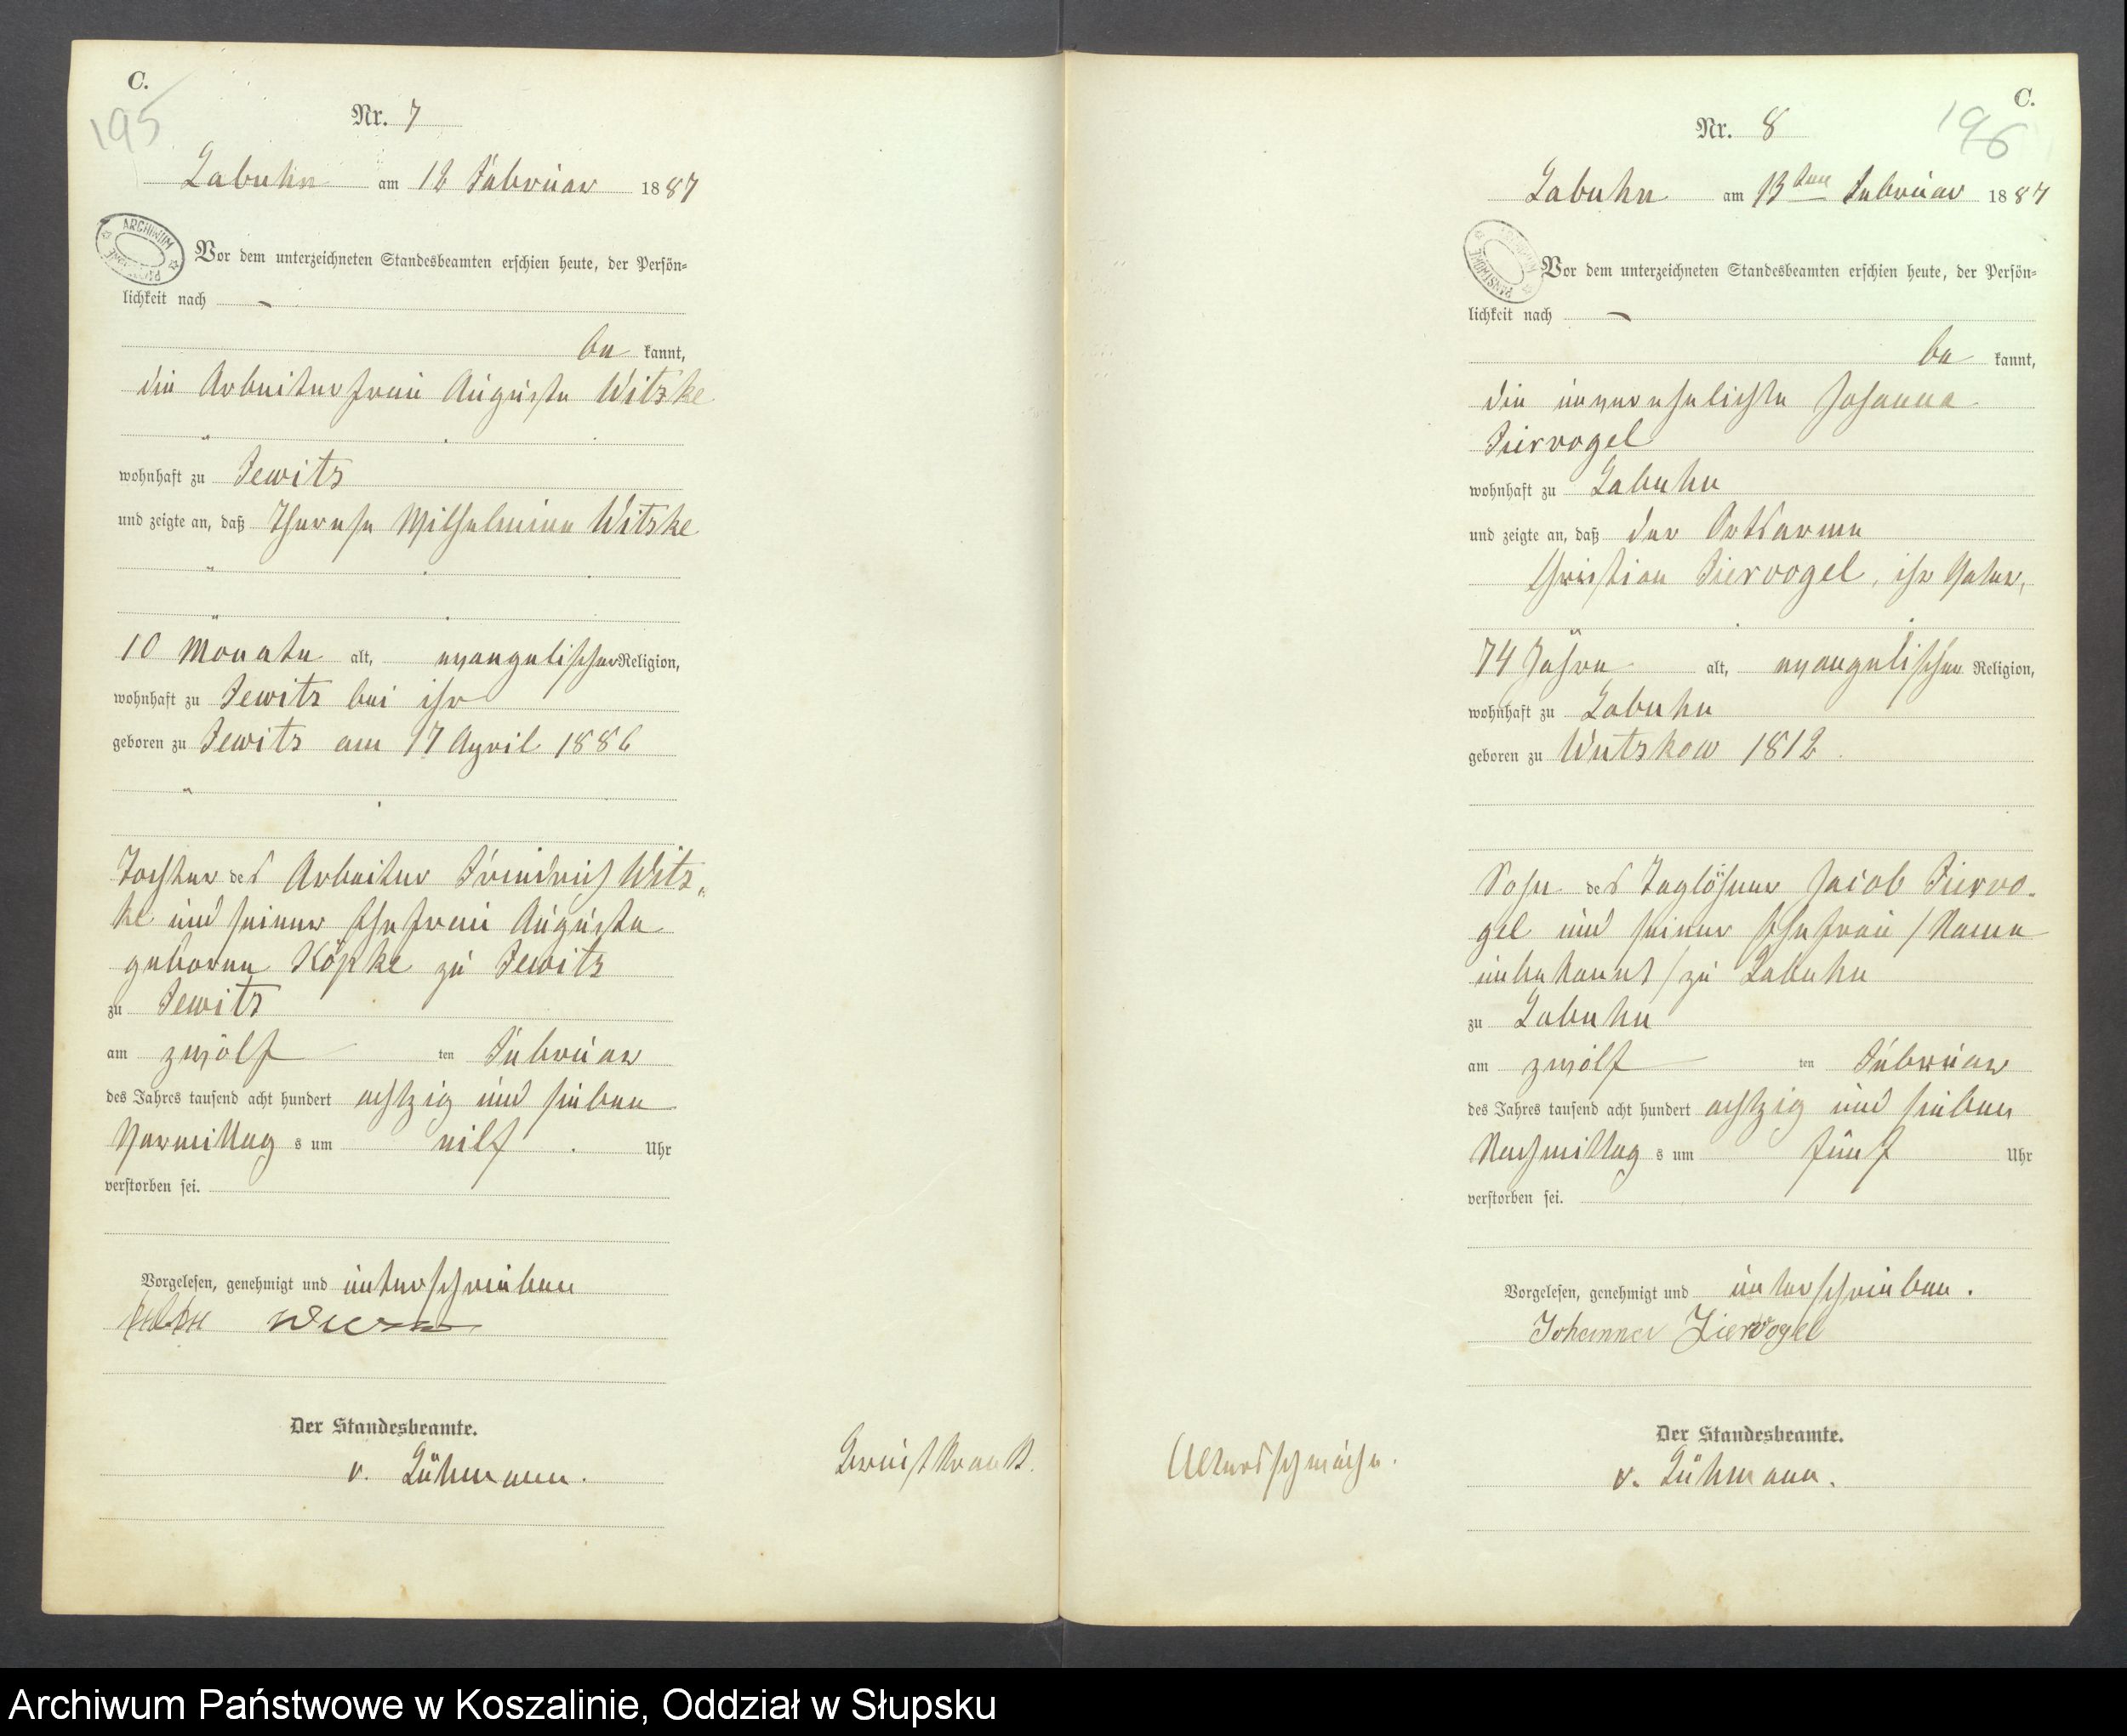 C.
195
Nr. 7
Labuhn am 12 Februar 1887
ARCHIWUM
Vor dem unterzeichneten Standesbeamten erschien heute, der Persön=
lichkeit nach -
be kannt,
die Arbeiterfrau Auguste Witzke
wohnhaft zu Jewitz
und zeigte an, daß Therese Wilhelmine Witzke
10 Monate alt, evangelischer Religion,
wohnhaft zu Jewitz bei ihr
geboren zu Jewitz am 17 April 1886
Tochter des Arbeiter Friedrich Witz=
ke und seiner Ehefrau Auguste
geborene Köpke zu Jewitz
zu Jewitz
am zwölf ten Februar
des Jahres tausend acht hundert achtzig und sieben
Vormittag s um eilf Uhr
verstorben sei.
Vorgelesen, genehmigt und unterschrieben
Der Standesbeamte.
v. Lühmann.
C.
196
Nr. 8
Labuhn am 13ten Februar 1887
Vor dem unterzeichneten Standesbeamten erschien heute, der Persön=
lichkeit nach -
be kannt,
die unverehelichte Johanna
Ziervogel
wohnhaft zu Labuhn
und zeigte an, daß der Ortsarme
Christian Ziervogel, ihr Vater,
74 Jahre alt, evangelischer Religion,
wohnhaft zu Labuhn
geboren zu Wutzkow 1812.
Sohn des Taglöhner Jacob Ziervo-
gel und seiner Ehefrau /Name
unbekannt/ zu Labuhn
zu Labuhn
am zwölf ten Februar
des Jahres tausend acht hundert achtzig und sieben
Nachmittag s um fünf Uhr
verstorben sei.
Vorgelesen, genehmigt und unterschrieben.
Johanna Ziervogel
Altersschwäche.
Der Standesbeamte.
v. Lühmann.
Archiwum Państwowe w Koszalinie, Oddział w Słupsku